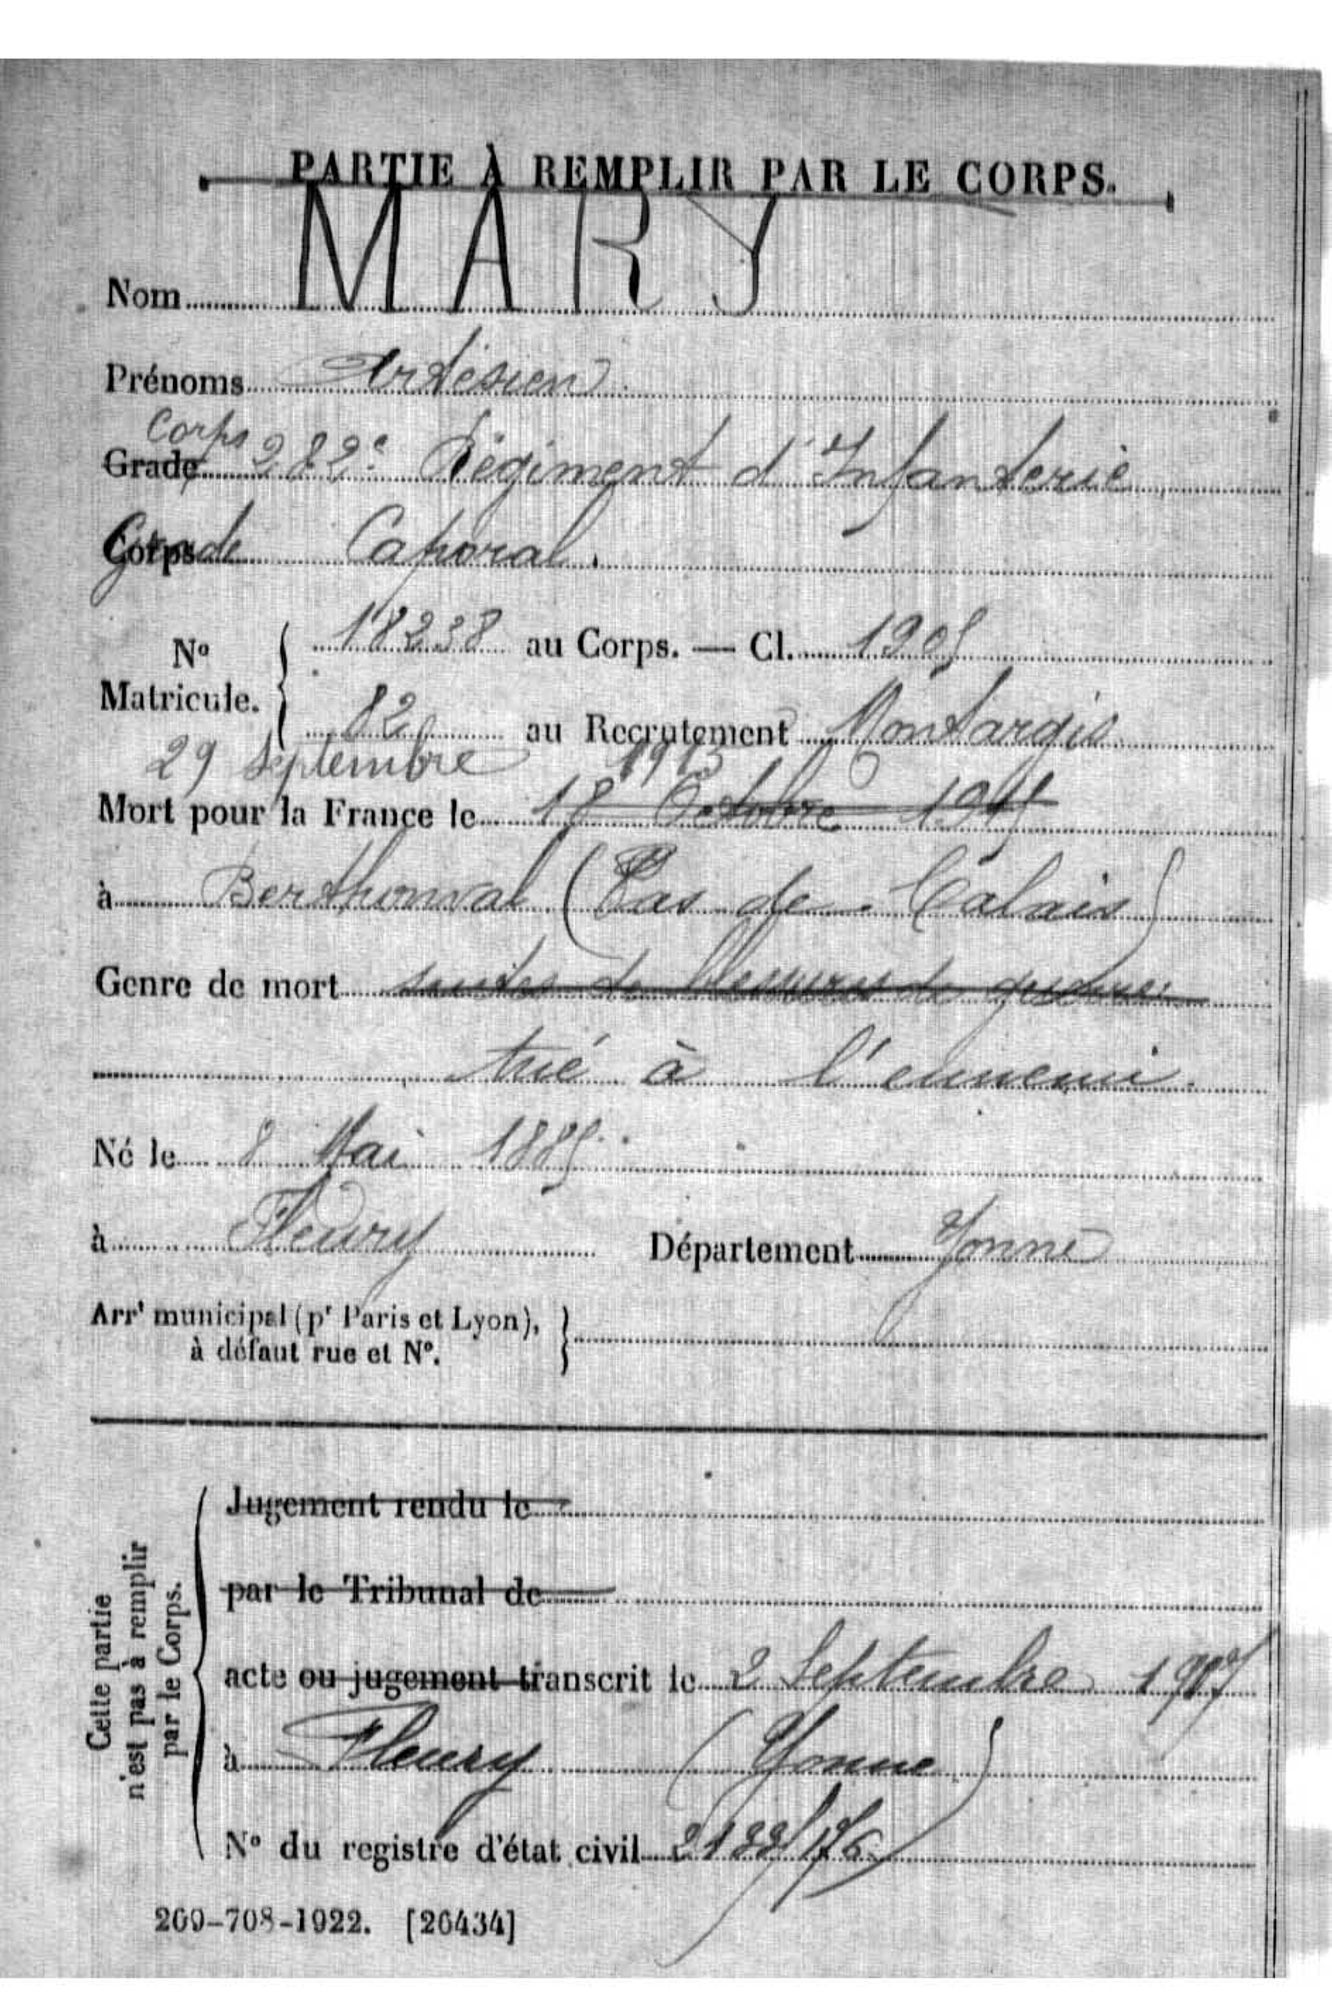 PARTIE À REMPLIR PAR LE CORPS.
Nom MARY
Prénoms Artésien
Corps
Grade 282e Régiment d'Infanterie
Grade
Corps Caporal.
No Matricule. { 18238 au Corps. — Cl. 1905
82 au Recrutement Montargis
29 Septembre 1915
Mort pour la France le 18 Octobre 1915
à Berthonval (Pas de Calais)
Genre de mort suites de blessures de guerre
tué à l'ennemi
Né le 8 Mai 1885
à Fleury Département Yonne
Arrt municipal (pr Paris et Lyon),
à défaut rue et No. }
Cette partie
n'est pas à remplir
par le Corps.
Jugement rendu le
par le Tribunal de
acte ou jugement transcrit le 2 Septembre 1917
à Fleury (Yonne)
No du registre d'état civil
269-708-1922. [26434]